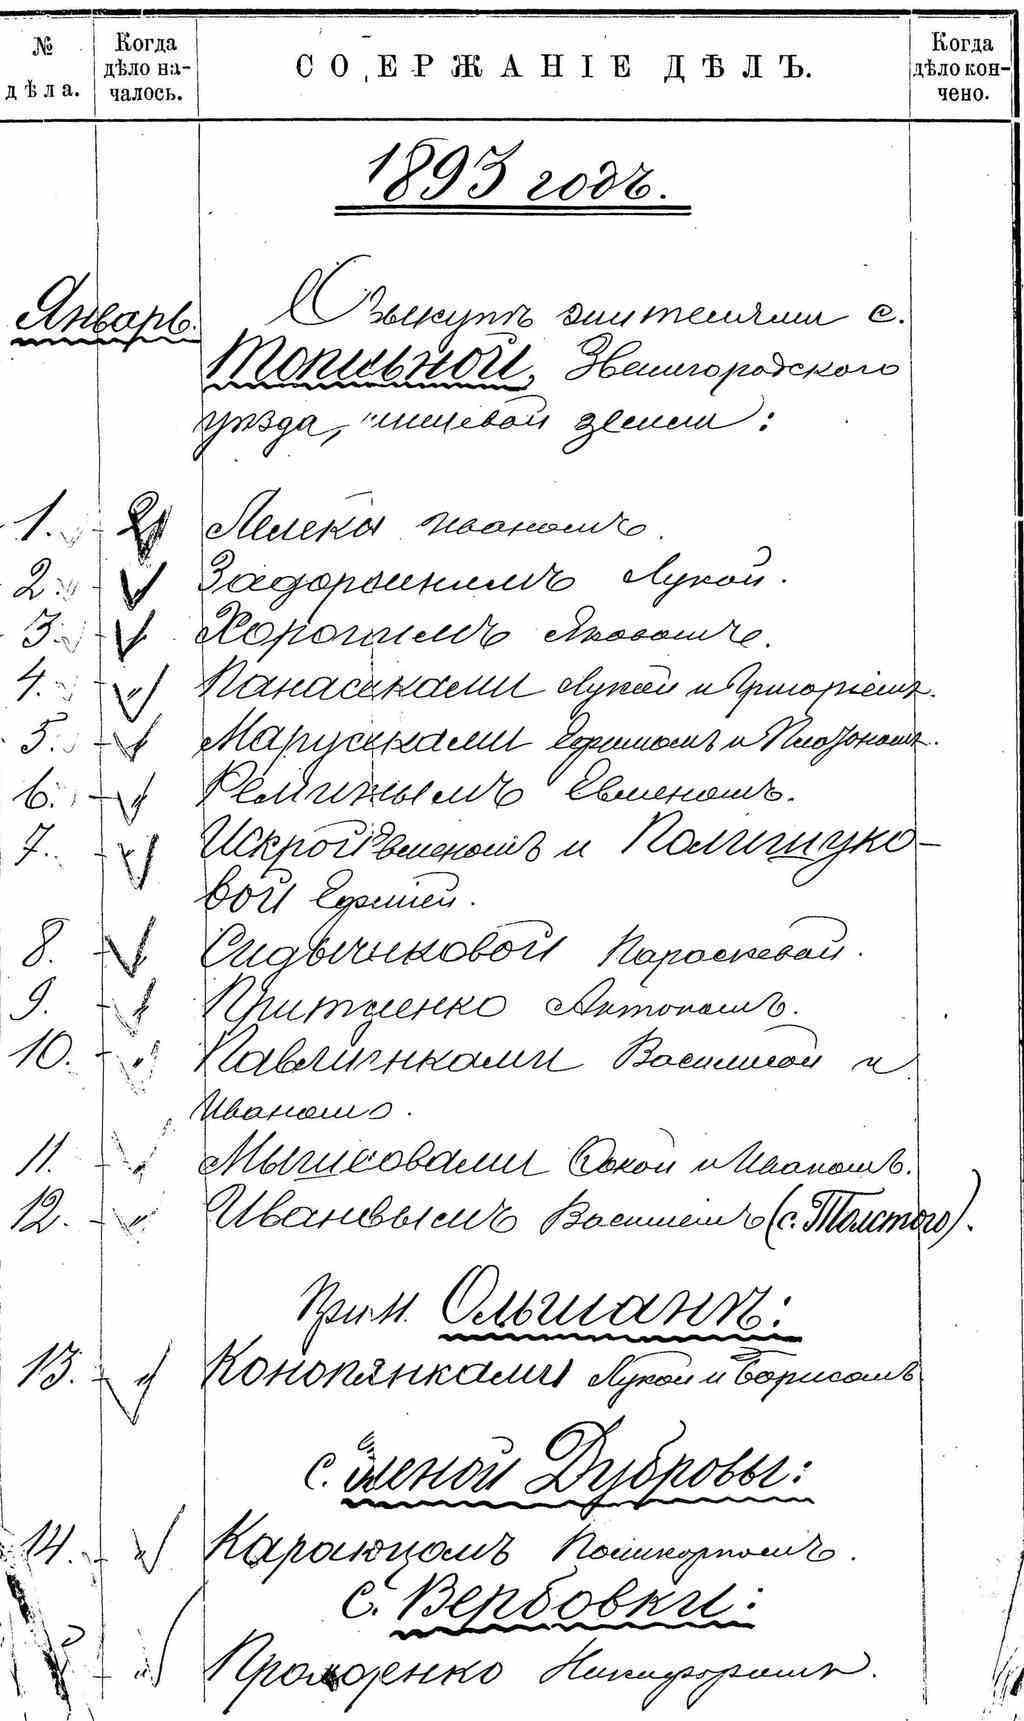 № дѣла.
Когда дѣло на-
чалось.
СОДЕРЖАНІЕ ДѢЛЪ.
Когда дѣло кон-
чено.
1893 годъ.
Январь.
О выкупѣ жителями с.
Топильной, Звенигородского
уѣзда, чиншевой земли:
1. 21 Лелека Иваномъ.
2. Задорожнимъ Лукой.
3. Хорошимъ Яковомъ.
4. " Панасюками Лукой и Григоріемъ.
5. " Марусиками Ефимомъ и Платономъ.
6. " Ремигинымъ Евменомъ.
7. " Искрой Евменомъ и Полищуко-
вой Ефиміей.
8. " Сидычиковой Параскевой.
9. " Притуленко Антономъ.
10. " Павличиками Василисой и
Иваномъ.
11. " Мышсовами Феклой и Иваномъ.
12. " Ивановымъ Василіемъ (с. Толстого).
При м. Ольшанѣ:
13. " Конопянками Лукой и Борисомъ
с. Зеленой Дубровы:
14. " Караюзомъ Поликарпомъ.
с. Вербовки:
" Проценко Никифоромъ.